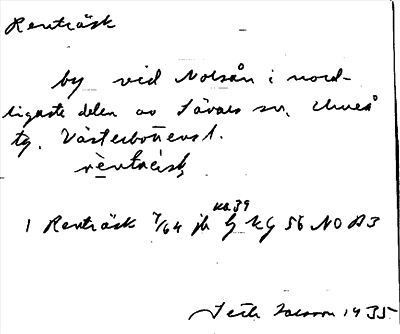 Renträsk
by vid Nolsån i nord-
ligaste delen av Sävars sn, Umeå
tg. Västerbottens l.
rèntrèisk,
ka 39
1 Renträsk 7/64 jk G kg 56 NO B3
1935